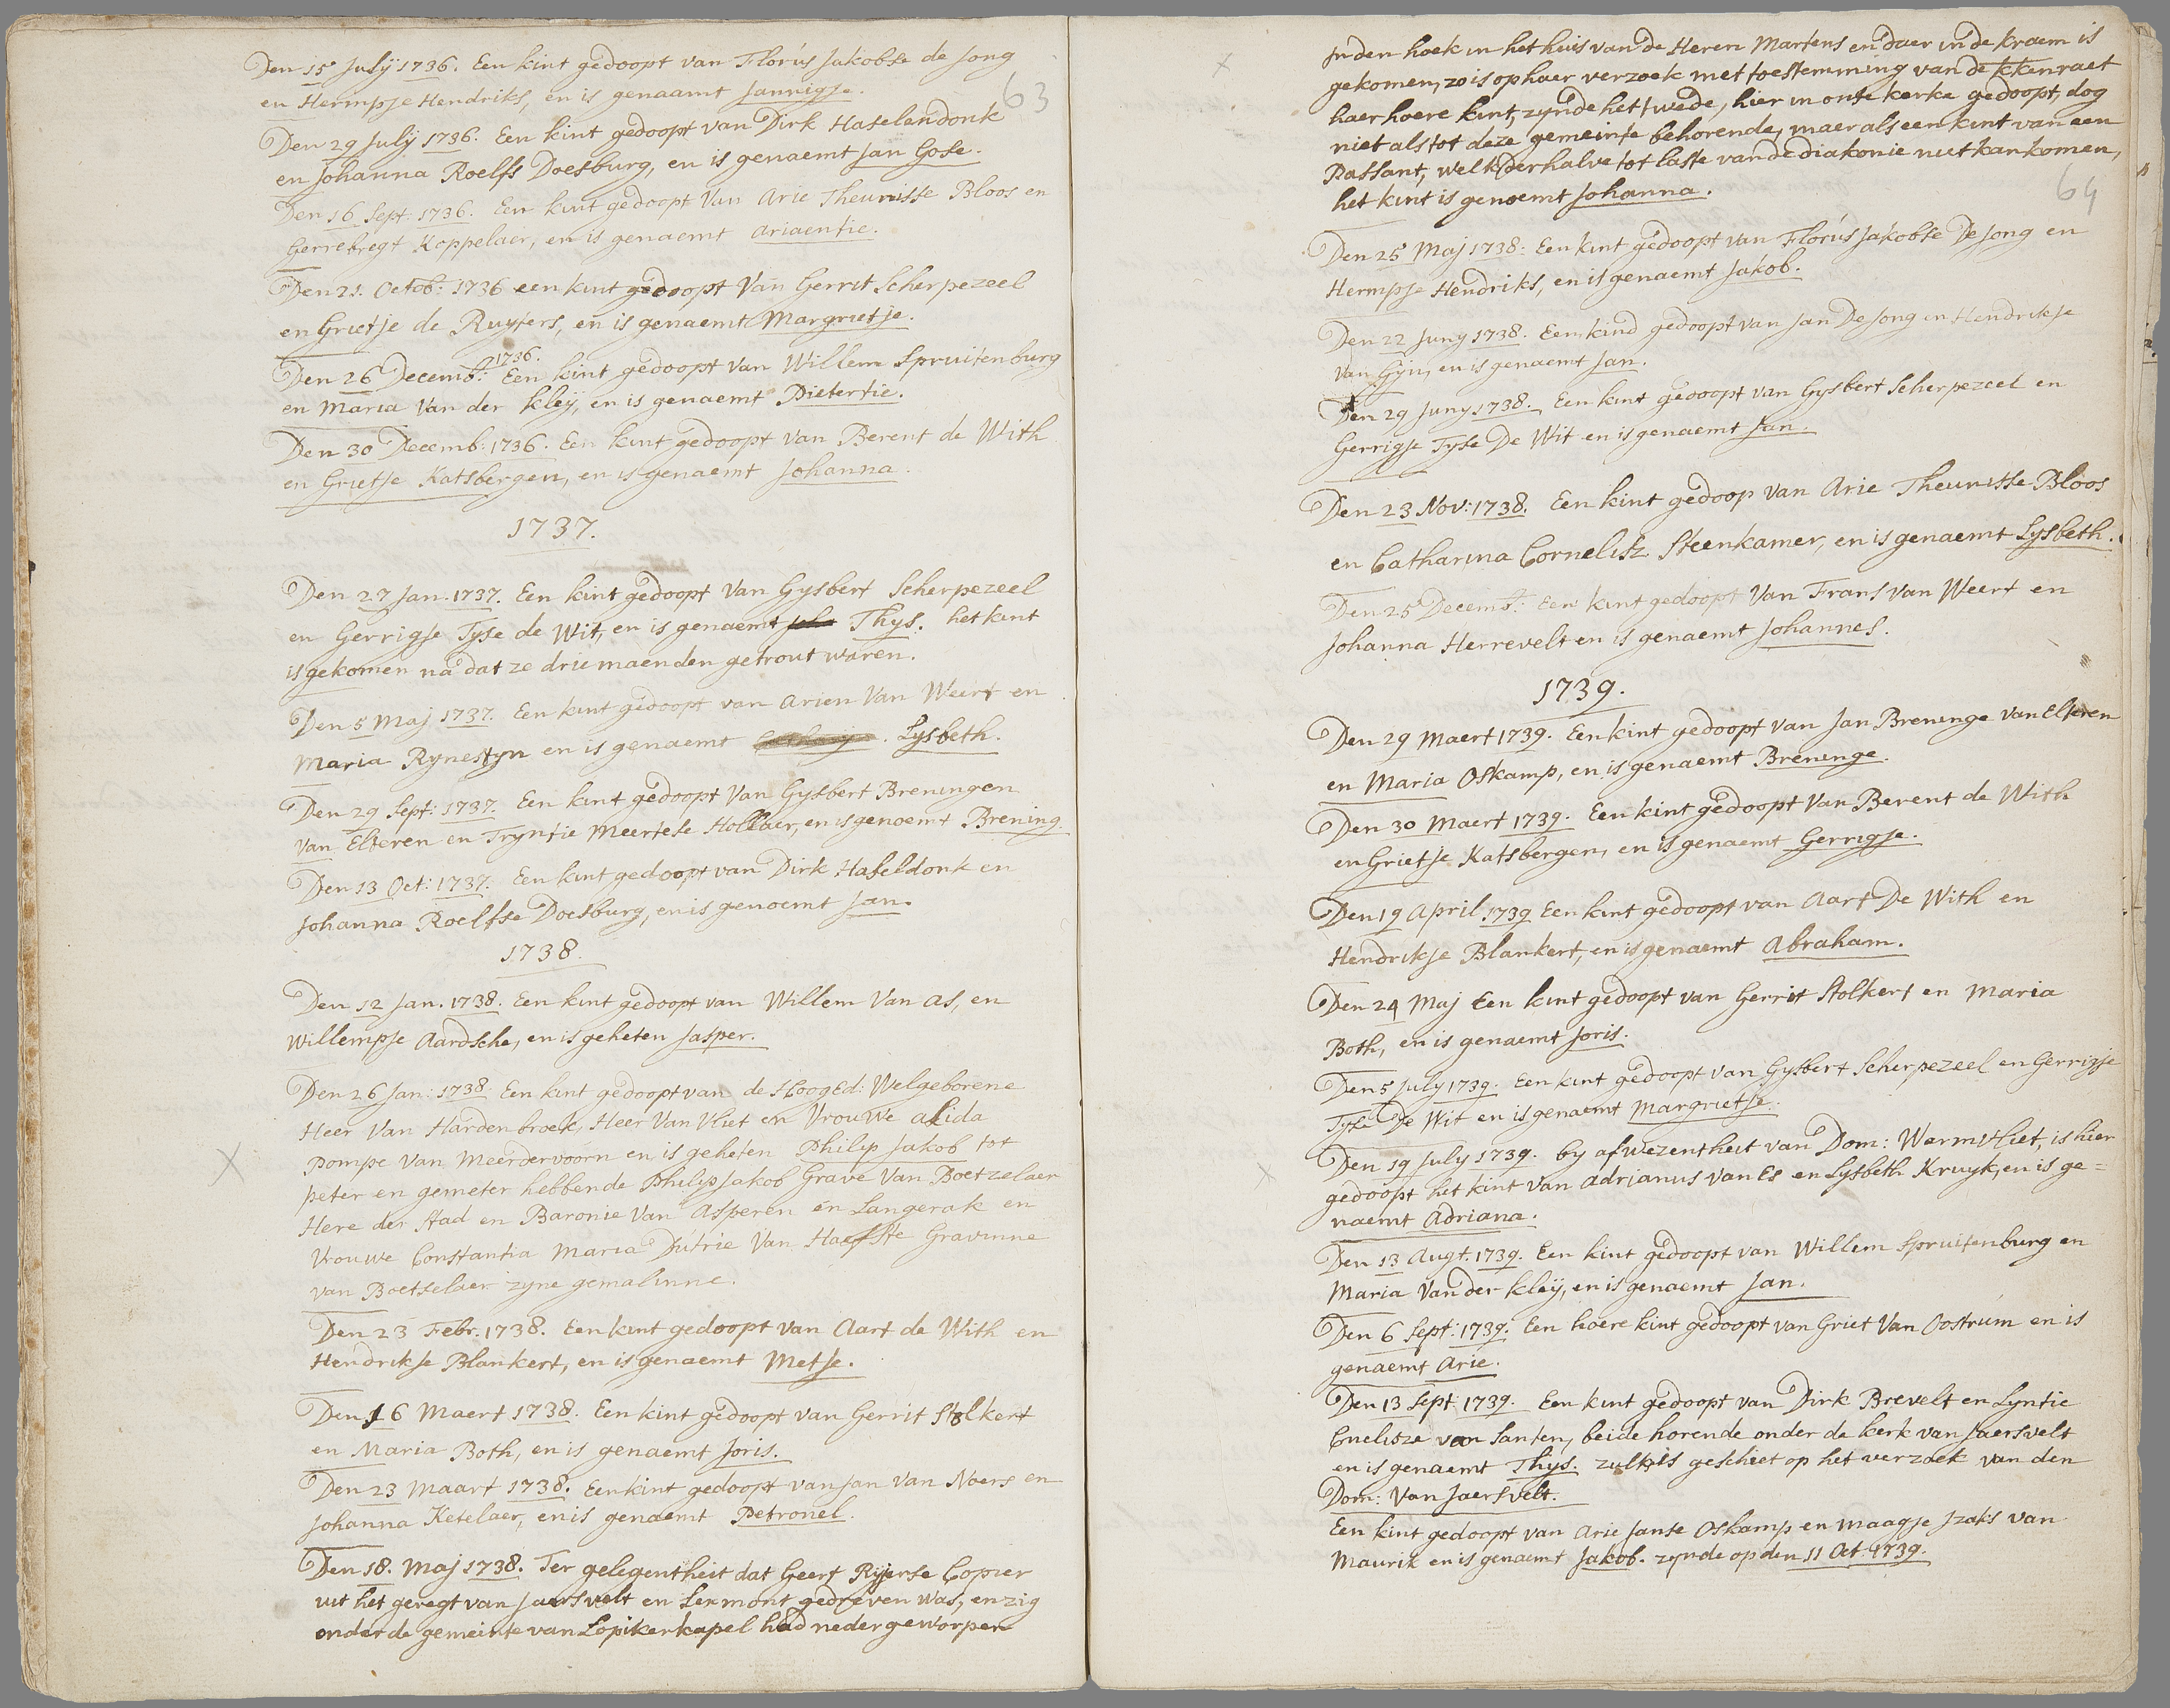 63
Den 15 July 1736. Een kint gedoopt van Florus Jakobse de Jong
en Hermpje Hendriks, en is genaamt Jannigje.
Den 29 July 1736. Een kint gedoopt van Dirk Haselendonk
en Johanna Roelfs Doesburg, en is genaemt Jan Gose.
Den 16 Sept: 1736. Een kint gedoopt Van Arie Theunisse Bloos en
Gerrebregt Koppelaer, en is genaemt Ariaentie.
Den 21. Octob: 1736 een kint gedoopt Van Gerrit Scherpezeel
en Grietje de Ruyters, en is genaemt Margrietje.
1736.
Den 26 Decemb: Een kint gedoopt van Willem Spruitenburg
en Maria Van der Kleÿ, en is genaemt Pietertie.
Den 30 Decemb: 1736. Een kint gedoopt van Berent de With
en Grietje Katsbergen, en is genaemt Johanna.
1737.
Den 27 Jan. 1737. Een kint gedoopt Van Gysbert Scherpezeel
en Gerrigje Tyse de Wit, en is genaemt Thys. het kint
is gekomen na dat ze drie maenden getrout waren.
Den 5 Maj 1737. Een kint gedoopt van Arien Van Weert en
Maria Rynestyn en is genaemt Lysbeth.
Den 29 Sept: 1737. Een kint gedoopt Van Gysbert Breningen
van Elteren en Tryntie Meertese Hollaer, en is genoemt Brening
Den 13 Oct: 1737. Een kint gedoopt van Dirk Haseldonk en
Johanna Roelfse Doesburg, en is genoemt Jan.
1738.
Den 12 Jan. 1738. Een kint gedoopt van Willem Van As, en
Willempje Aardsche, en is geheten Jasper.
Den 26 Jan: 1738. Een kint gedoopt van de Hooged: Welgeborene
Heer Van Hardenbroek, Heer Van Vliet en Vrouwe Alida
Pompe Van Meerdervoorn en is geheten Philip Jakob tot
peter en gemeter hebbende Philip Jakob Grave Van Boetzelaer
Here der stad en Baronie Van Asperen en Langerak en
Vrouwe Constantia Maria Dutrie Van Haefste Gravinne
van Boetselaer zyne gemalinne.
Den 23 Febr. 1738. Een kint gedoopt van Aart de With en
Hendrikje Blankert, en is genaemt Metje.
Den 16 Maert 1738. Een kint gedoopt van Gerrit Stolkert
en Maria Both, en is genaemt Joris.
Den 23 Maart 1738. Een kint gedoopt van Jan Van Noers en
Johanna Ketelaer, en is genaemt Petronel.
Den 18. Maj 1738. Ter gelegentheit dat Geert Ryerse Copier
uit het geregt van Jaersvelt en Lexmont gedreven was, en zig
onder de gemeinte van Lopikerkapel had neder geworpen
64
In den hoek in het huis van de Heren Martens en daer in de kraem is
gekomen, zo is op haer verzoek met toestemming van de kkenraet
haer hoere kint, zynde het twede, hier in onse kerke gedoopt, dog
niet als tot deze gemeinte behorende, maer als een kint van een
Passant, welk derhalve tot laste van de diakonie niet kan komen,
het kint is genoemt Johanna.
Den 25 Maj 1738: Een kint gedoopt van Florus Jakobse De Jong en
Hermpje Hendriks, en is genaemt Jakob.
Den 22 Juny 1738. Een kind gedoopt van Jan De Jong en Hendrikje
Van Gyn, en is genaemt Jan.
Den 29 Juny 1738. Een kint gedoopt van Gysbert Scherpezeel en
Gerrigje Tyse De Wit en is genaemt Jan.
Den 23 Nov: 1738. Een kint gedoop van Arie Theunisse Bloos
en Catharina Cornelisz. Steenkamer, en is genaemt Lysbeth.
Den 25 Decemb: Een kint gedoopt Van Frans van Weert en
Johanna Herrevelt en is genaemt Johannes.
1739.
Den 29 Maert 1739. Een kint gedoopt van Jan Breninge van Elteren
en Maria Oskamp, en is genaemt Breninge.
Den 30 Maert 1739. Een kint gedoopt Van Berent de With
en Grietje Katsbergen, en is genaemt Gerrigje.
Den 19 April 1739 Een kint gedoopt van Aart De With en
Hendrikje Blankert, en is genaemt Abraham.
Den 24 Maj Een kint gedoopt van Gerrit Stolkert en Maria
Both, en is genaemt Joris.
Den 5 July 1739. Een kint gedoopt van Gysbert Scherpezeel en Gerrigje
Tyse De Wit en is genaemt Margrietje.
Den 19 July 1739. by afwezentheit van Dom: Warmvliet, is hier
gedoopt het kint van Adrianus van Es en Lysbeth Kruyk, en is ge=
naemt Adriana.
Den 13 Augt. 1739. Een kint gedoopt van Willem Spruitenburg en
Maria Van der Kleÿ, en is genaemt Jan.
Den 6 Sept: 1739. Een hoere kint gedoopt van Griet Van Oostrum en is
genaemt Arie.
Den 13 Sept: 1739. Een kint gedoopt van Dirk Brevelt en Lyntie
Cnelisze van Santen, beide horende onder de kerk van Jaersvelt
en is genaemt Thys. zulks is geschiet op het verzoek van den
Dom: Van Jaersvelt.
Een kint gedoopt van Arie Janse Oskamp en Maagje Izaks van
Maurik en is genaemt Jakob. zynde op den 11 Oct. 1739.